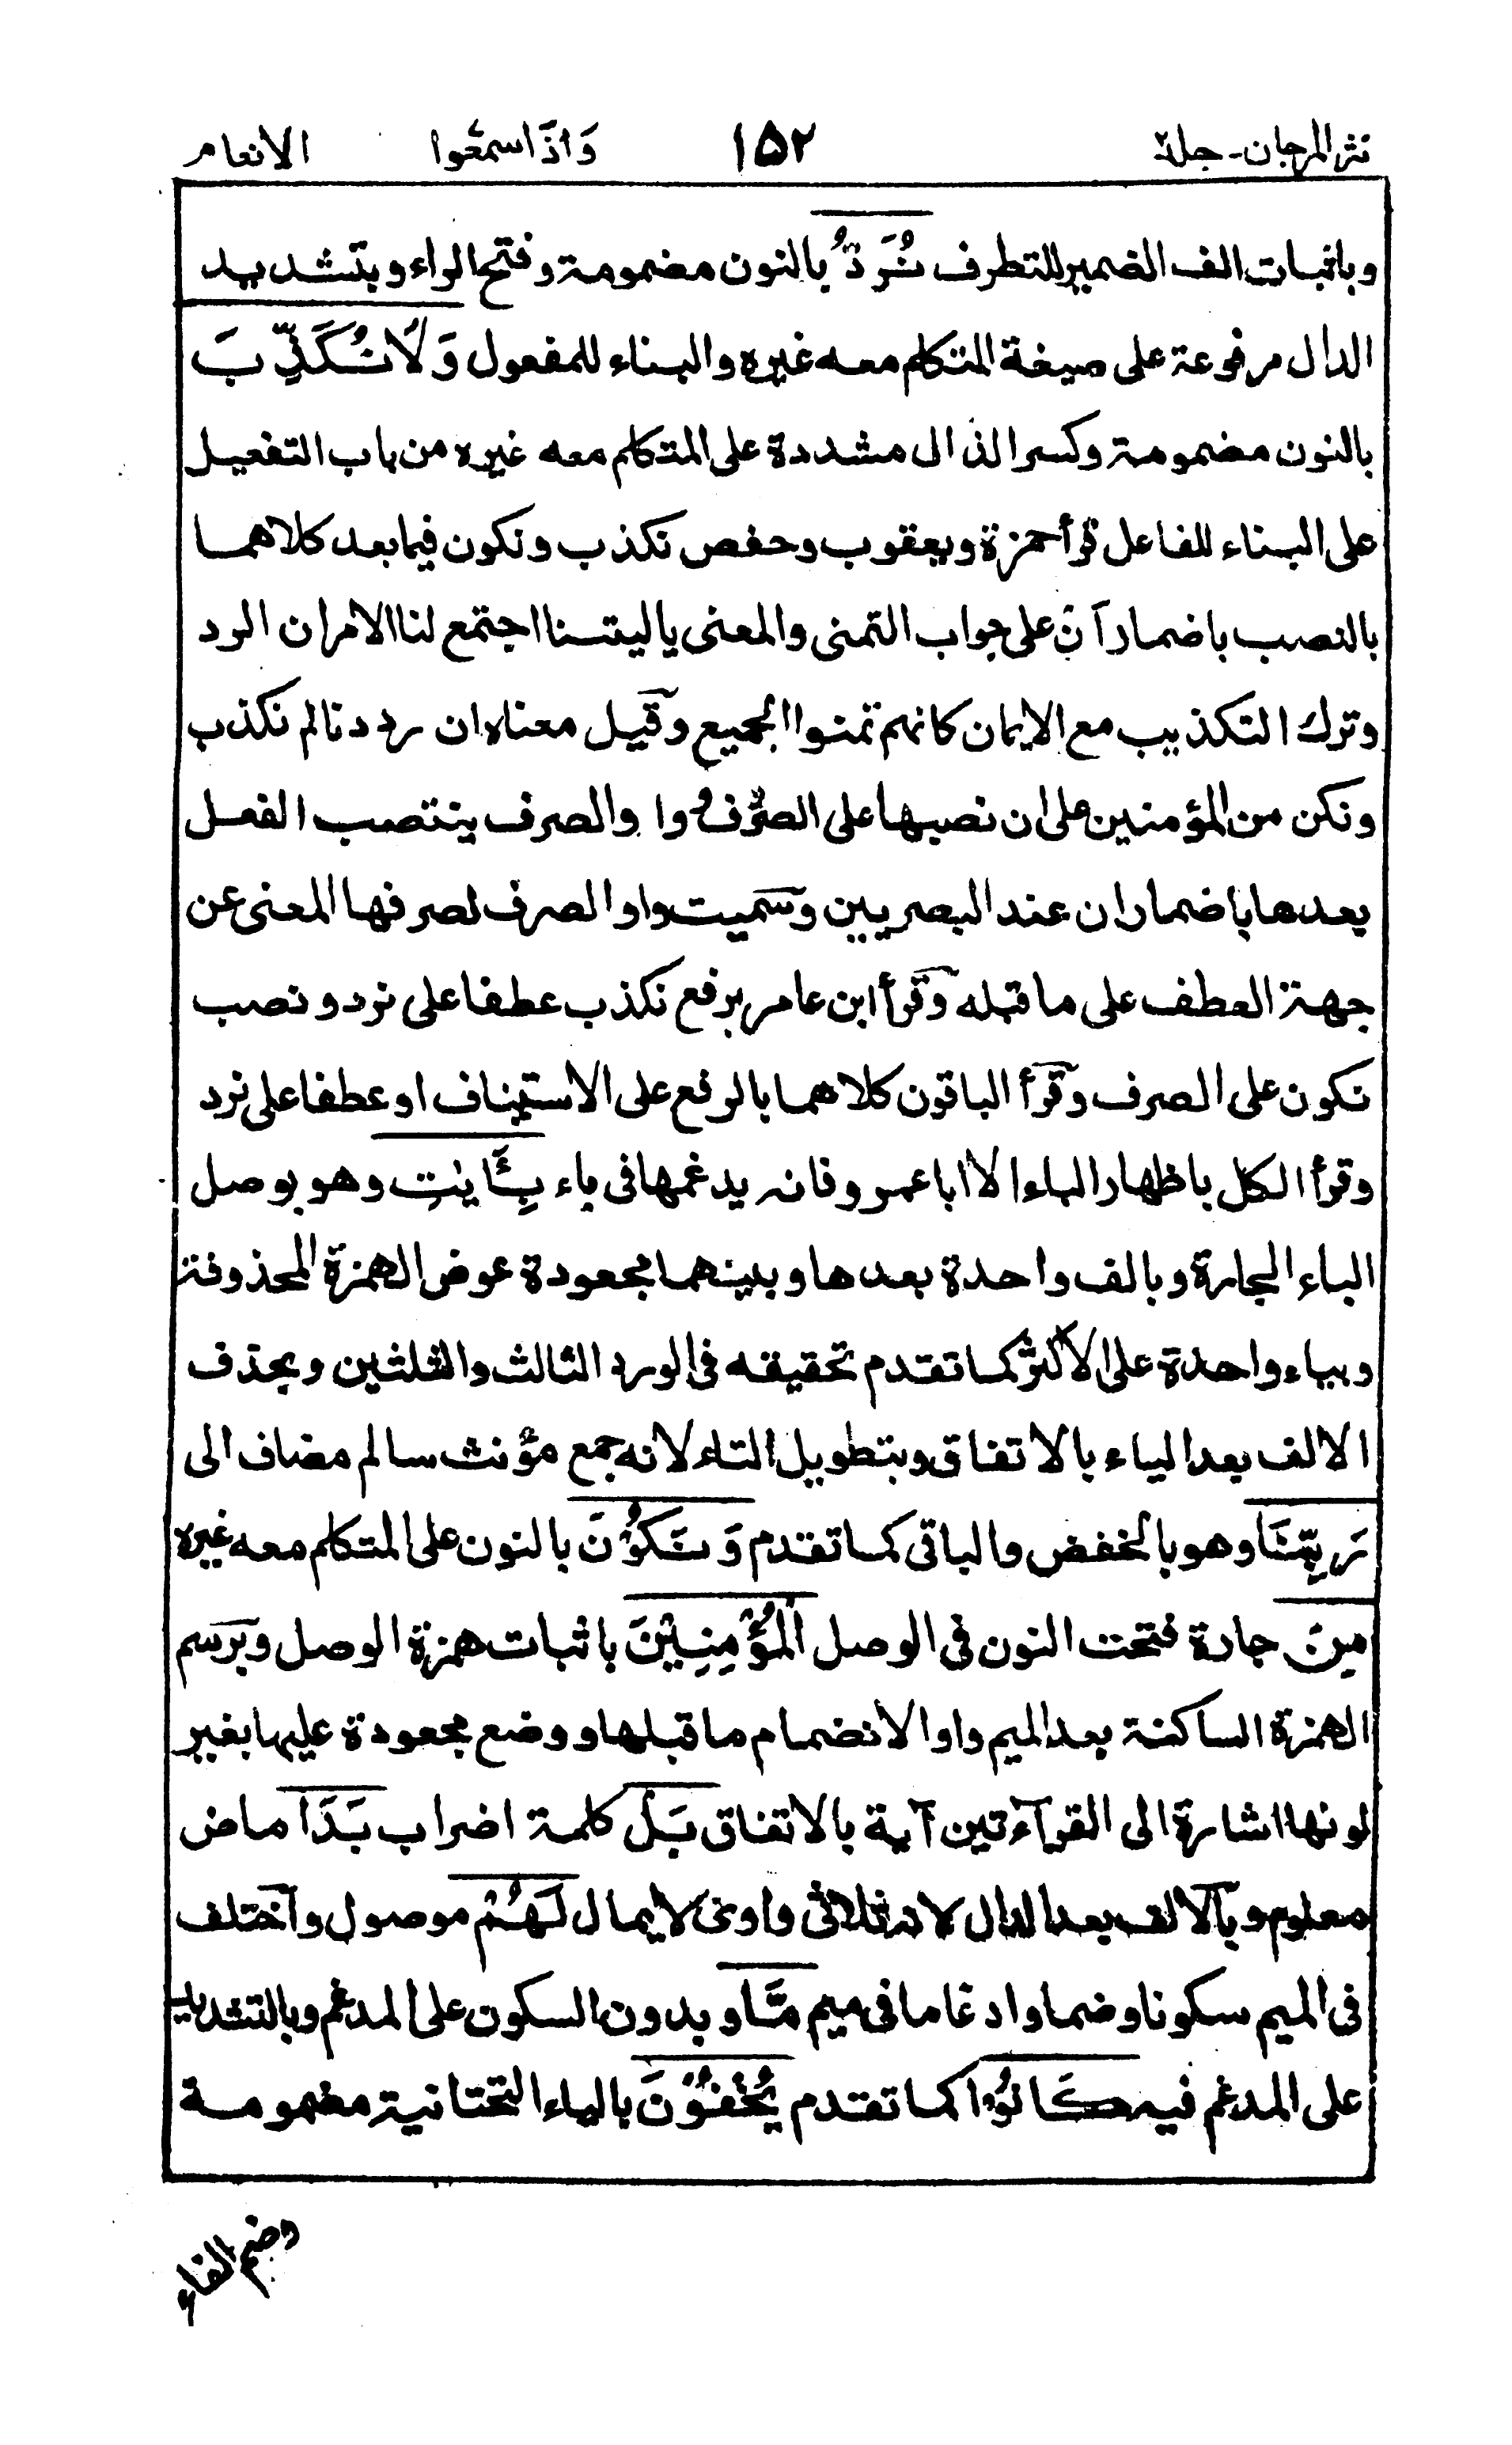 نثر المرجان - جلد ١٥٢ وَاِذَا سمعُوا الانعام
وباثبات الف الضمير للتطرف نُرَدُّ بالنون مضمومة وفتح الراء وبتشديد
الدال مرفوعة على صيغة المتكلم معه غيره والبناء للمفعول وَلَا نُكَذِّبَ
بالنون مضمومة وكسر الذال مشددة على المتكلم معه غيره من باب التفعيل
على البناء للفاعل قرأ حمزة ويعقوب وحفص نكذب ونكون فيما بعد كلاهما
بالنصب باضمار اَنْ على جواب التمنى والمعنى ياليتنا اجتمع لنا الامران الرد
وترك التكذيب مع الايمان كانهم تمنوا الجميع وقيل معناه ان رددنا لم نكذب
ونكن من المؤمنين على ان نصبها على الصرف واوالصرف ينتصب الفعل
بعدها باضمار ان عند البصريين وسميت واو الصرف لصرفها المعنى عن
جهة العطف على ما قبله وقرأ ابن عامر برفع نكذب عطفا على نرد ونصب
نكون على الصرف وقرأ الباقون كلاهما بالرفع على الاستيناف او عطفا على نرد
وقرأ الكل باظهار الباء الا ابا عمرو فانه يدغمها فى باء بِـَٔايٰتِ وهو بوصل
الباء الجارة وبالف واحدة بعدها وبينهما مجعودة عوض الهمزة المحذوفة
وبياء واحدة على الاكثر كما تقدم تحقيقه فى الورد الثالث والثلثين وبحذف
الالف بعد الياء بالاتفاق وبتطويل التاء لانه جمع مؤنث سالم مضاف الى
رَبِّنَا وهو بالخفض والباقى كما تقدم وَنَكُوْنَ بالنون على المتكلم معه غيره
مِنَ جارة فتحت النون فى الوصل الْمُؤْمِنِيْنَ باثبات همزة الوصل وبرسم
الهمزة الساكنة بعد الميم واوا لانضمام ما قبلها ووضع مجعودة عليها بغير
لونها اشارة الى القرآءتين آية بالاتفاق بَلْ كلمة اضراب بَدَا ماض
معلوم وبالالف بعد الدال لانه ثلاثى واوى لايمال لَهُمْ موصول واختلف
فى الميم سكونا وضما وادغاما فى ميم مَّا وبدون السكون على المدغم وبالتشديد
على المدغم فيه كَانُوْا كما تقدم يُخْفُوْنَ بالياء التحتانية مضمومة
وضم الفاء